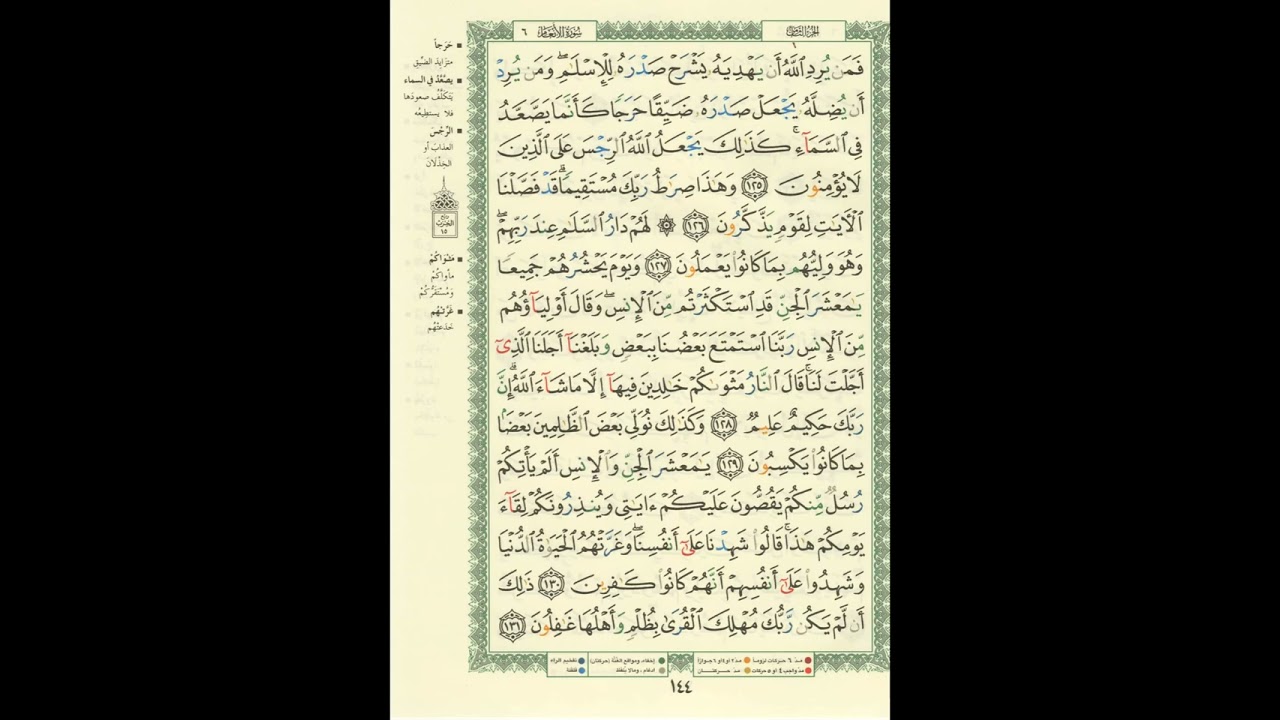 سُورَةُ الأَنْعَامِ ٦
فَمَن يُرِدِ ٱللَّهُ أَن يَهْدِيَهُۥ يَشْرَحْ صَدْرَهُۥ لِلْإِسْلَٰمِ ۖ وَمَن يُرِدْ
أَن يُضِلَّهُۥ يَجْعَلْ صَدْرَهُۥ ضَيِّقًا حَرَجًا كَأَنَّمَا يَصَّعَّدُ
فِى ٱلسَّمَآءِ ۚ كَذَٰلِكَ يَجْعَلُ ٱللَّهُ ٱلرِّجْسَ عَلَى ٱلَّذِينَ
لَا يُؤْمِنُونَ ١٢٥ وَهَٰذَا صِرَٰطُ رَبِّكَ مُسْتَقِيمًا ۗ قَدْ فَصَّلْنَا
ٱلْءَايَٰتِ لِقَوْمٍ يَذَّكَّرُونَ ١٢٦ ۞ لَهُمْ دَارُ ٱلسَّلَٰمِ عِندَ رَبِّهِمْ ۖ
وَهُوَ وَلِيُّهُم بِمَا كَانُوا۟ يَعْمَلُونَ ١٢٧ وَيَوْمَ يَحْشُرُهُمْ جَمِيعًا
يَٰمَعْشَرَ ٱلْجِنِّ قَدِ ٱسْتَكْثَرْتُم مِّنَ ٱلْإِنسِ ۖ وَقَالَ أَوْلِيَآؤُهُم
مِّنَ ٱلْإِنسِ رَبَّنَا ٱسْتَمْتَعَ بَعْضُنَا بِبَعْضٍ وَبَلَغْنَآ أَجَلَنَا ٱلَّذِىٓ
أَجَّلْتَ لَنَا ۚ قَالَ ٱلنَّارُ مَثْوَىٰكُمْ خَٰلِدِينَ فِيهَآ إِلَّا مَا شَآءَ ٱللَّهُ ۗ إِنَّ
رَبَّكَ حَكِيمٌ عَلِيمٌ ١٢٨ وَكَذَٰلِكَ نُوَلِّى بَعْضَ ٱلظَّٰلِمِينَ بَعْضًۢا
بِمَا كَانُوا۟ يَكْسِبُونَ ١٢٩ يَٰمَعْشَرَ ٱلْجِنِّ وَٱلْإِنسِ أَلَمْ يَأْتِكُمْ
رُسُلٌ مِّنكُمْ يَقُصُّونَ عَلَيْكُمْ ءَايَٰتِى وَيُنذِرُونَكُمْ لِقَآءَ
يَوْمِكُمْ هَٰذَا ۚ قَالُوا۟ شَهِدْنَا عَلَىٰٓ أَنفُسِنَا ۖ وَغَرَّتْهُمُ ٱلْحَيَوٰةُ ٱلدُّنْيَا
وَشَهِدُوا۟ عَلَىٰٓ أَنفُسِهِمْ أَنَّهُمْ كَانُوا۟ كَٰفِرِينَ ١٣٠ ذَٰلِكَ
أَن لَّمْ يَكُن رَّبُّكَ مُهْلِكَ ٱلْقُرَىٰ بِظُلْمٍ وَأَهْلُهَا غَٰفِلُونَ ١٣١
حَرَجاً
متزايد الضّيق
يصّعّد في السماء
يتكلّف صعودها
فلا يستطيعه
الرّجْسَ
العذاب أو
الخِذْلانَ
الحزب
١٥
مَثْوَاكُمْ
مأواكُمْ
ومُسْتَقَرُّكُمْ
غَرَّتْهُم
خدعَتْهُم
مدّ ٦ حركات لزوماً
مدّ ٢ أو ٤ أو ٦ جوازاً
إخفاء، ومواقع الغُنَّة (حركتان)
تفخيم الراء
مدّ واجب ٤ أو ٥ حركات
مدّ حركتان
ادغام، ومالا يُلفَظ
قلقلة
١٤٤